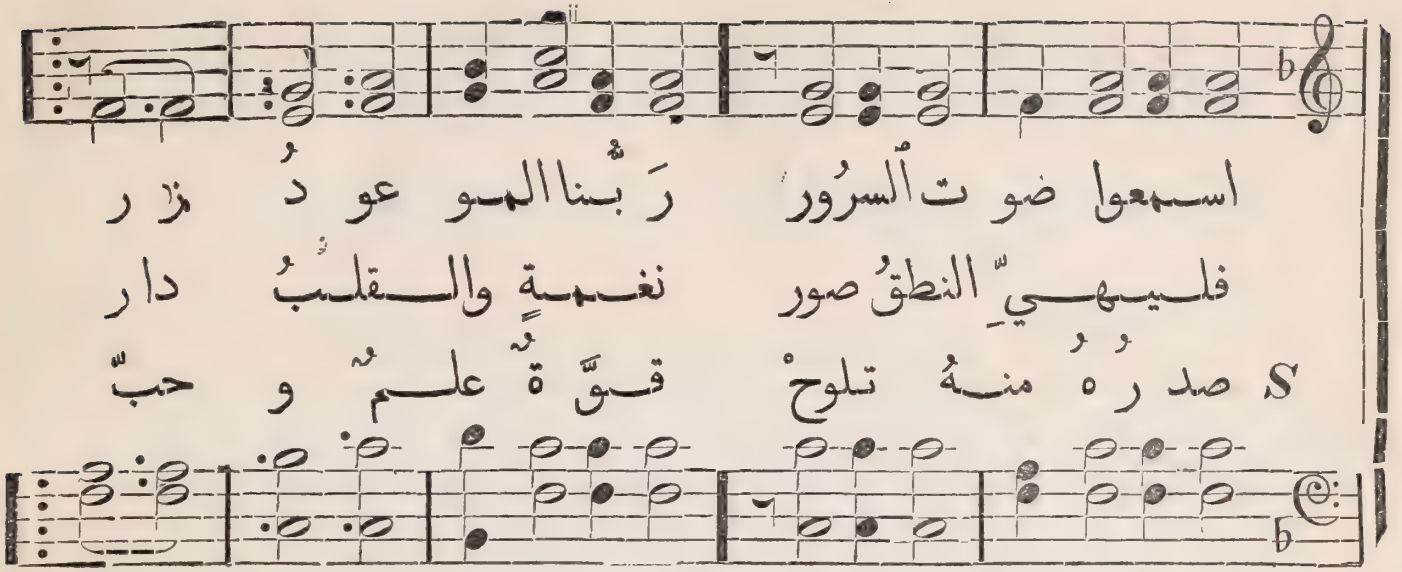 اسمعوا ضو ت ٱلسرُور رَ بُّنا المو عو دُ زا ر
فليهيِّ النطقُ صور نغمةٍ والقلبُ دار
S صد رُ هُ منهُ تلوحْ قوَّ ةٌ علمٌ و حبّ